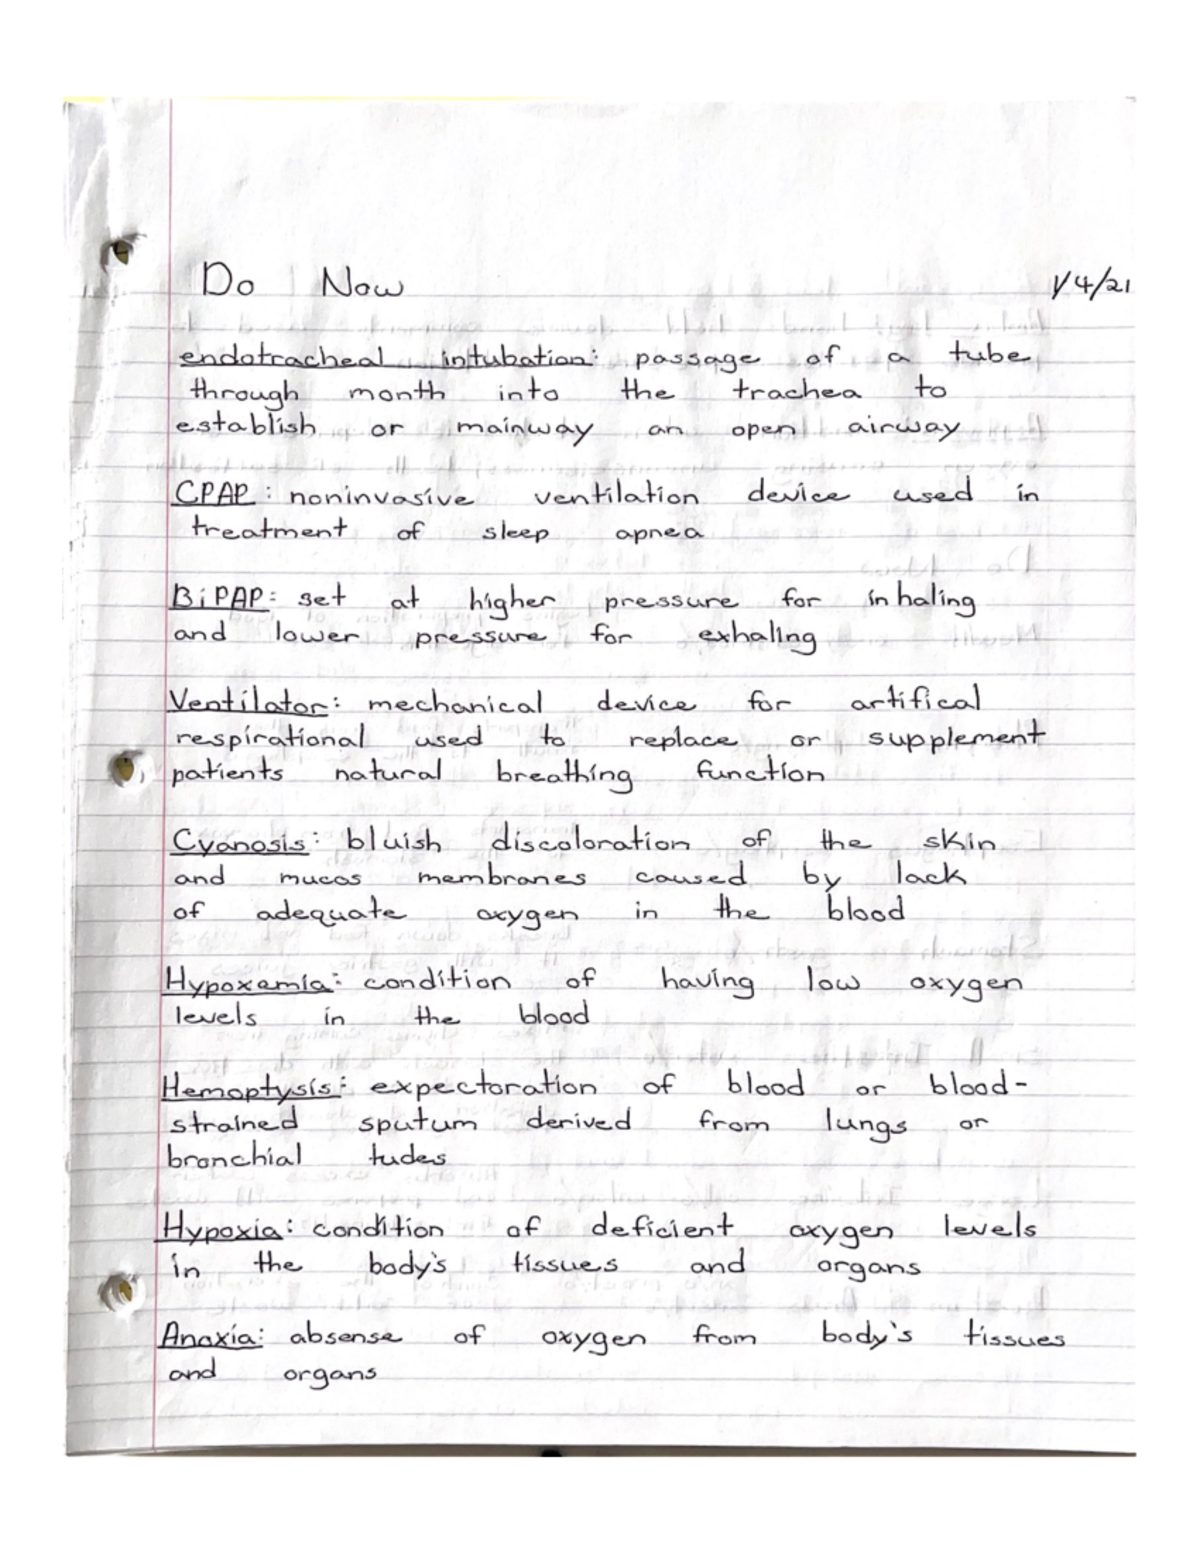 Do Now 1/4/21
endotracheal intubation: passage of a tube
through month into the trachea to
establish or mainway an open airway
CPAP: noninvasive ventilation device used in
treatment of sleep apnea
BiPAP: set at higher pressure for inhaling
and lower pressure for exhaling
Ventilator: mechanical device for artifical
respirational used to replace or supplement
patients natural breathing function
Cyanosis: bluish discoloration of the skin
and mucos membranes caused by lack
of adequate oxygen in the blood
Hypoxemia: condition of having low oxygen
levels in the blood
Hemoptysis: expectoration of blood or blood-
strained sputum derived from lungs or
bronchial tudes
Hypoxia: condition of deficient oxygen levels
in the body's tissues and organs
Anoxia: absense of oxygen from body's tissues
and organs